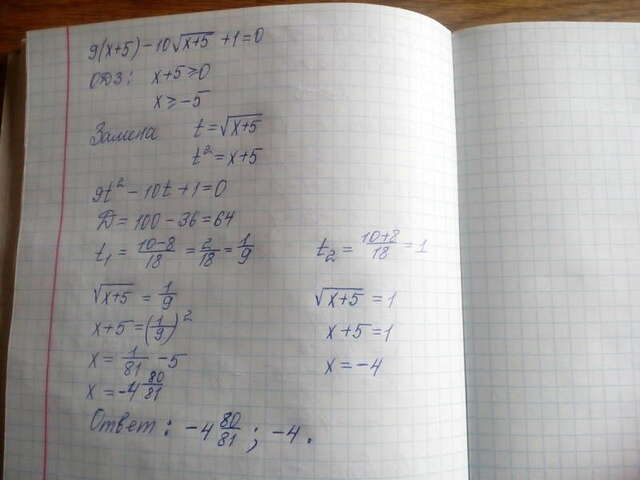 9(x+5)-10√x+5 +1=0
ОДЗ: x+5≥0
x≥-5
Замена t=√x+5
t²=x+5
9t²-10t+1=0
D=100-36=64
t₁=10-8/18=2/18=1/9 t₂=10+8/18=1
√x+5=1/9 √x+5=1
x+5=(1/9)² x+5=1
x=1/81-5 x=-4
x=-4 80/81
Ответ: -4 80/81; -4.